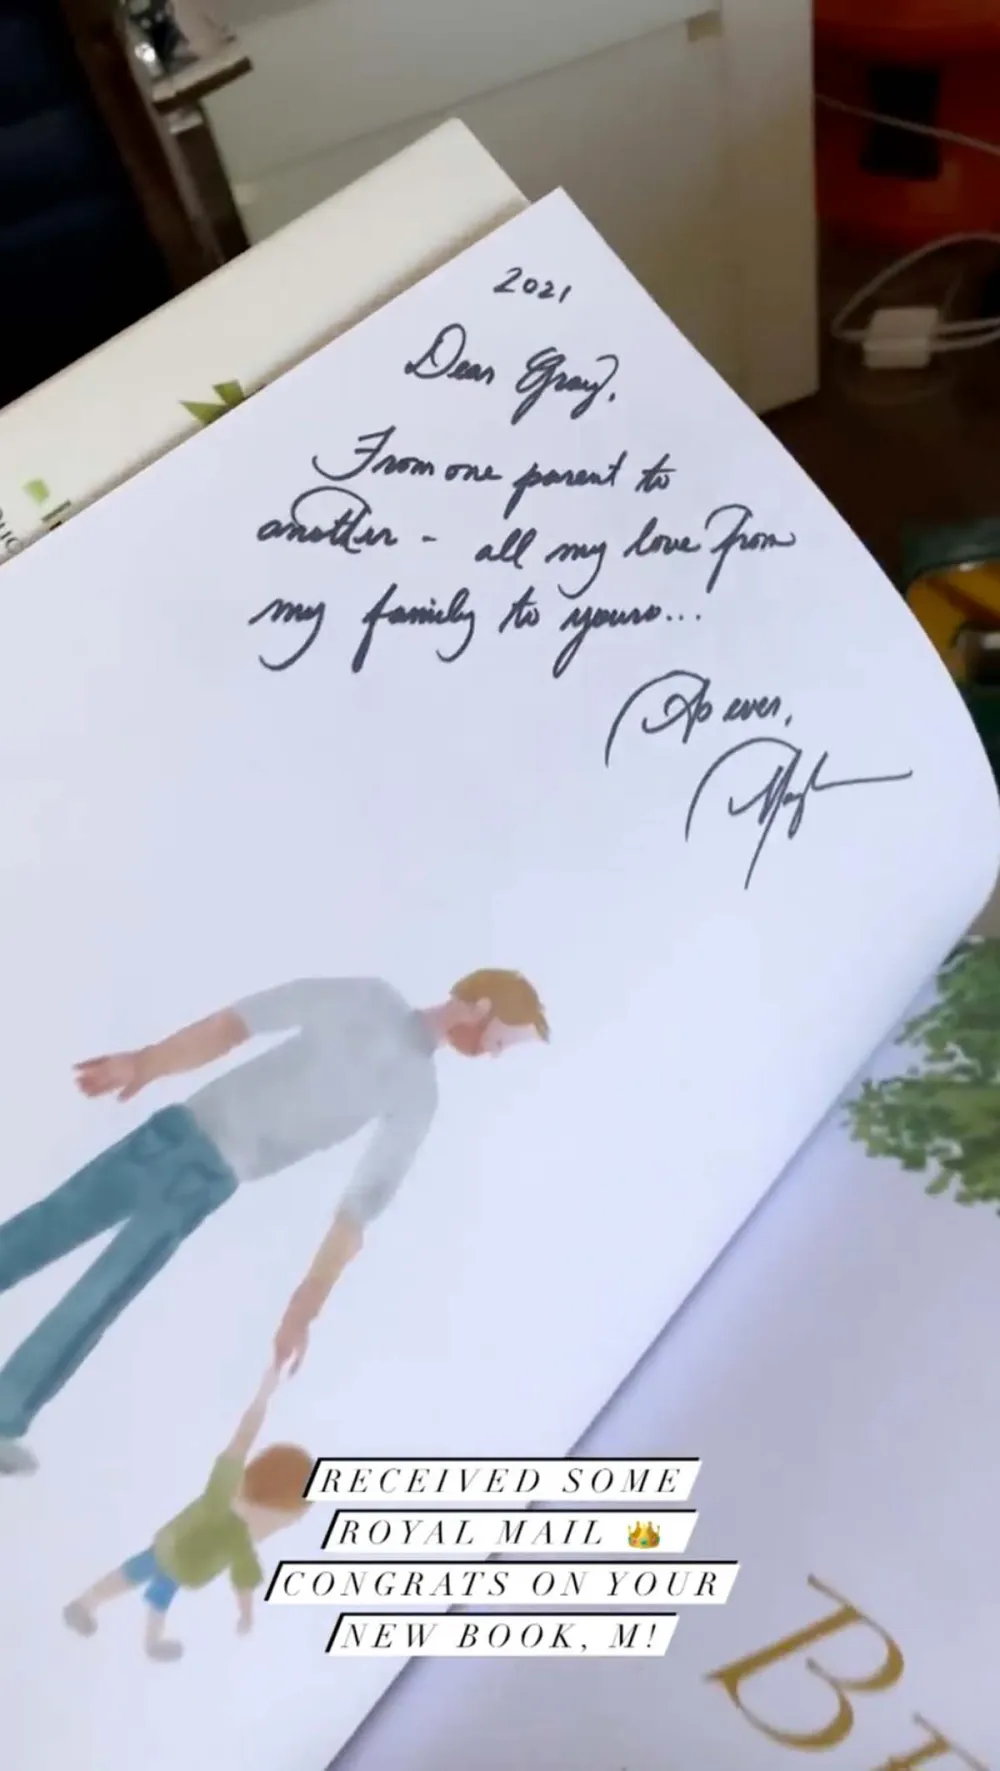 2021
Dear Gray,
From one parent to
another - all my love from
my family to yours...
As ever,
Meghan
RECEIVED SOME
ROYAL MAIL 👑
CONGRATS ON YOUR
NEW BOOK, M!
B